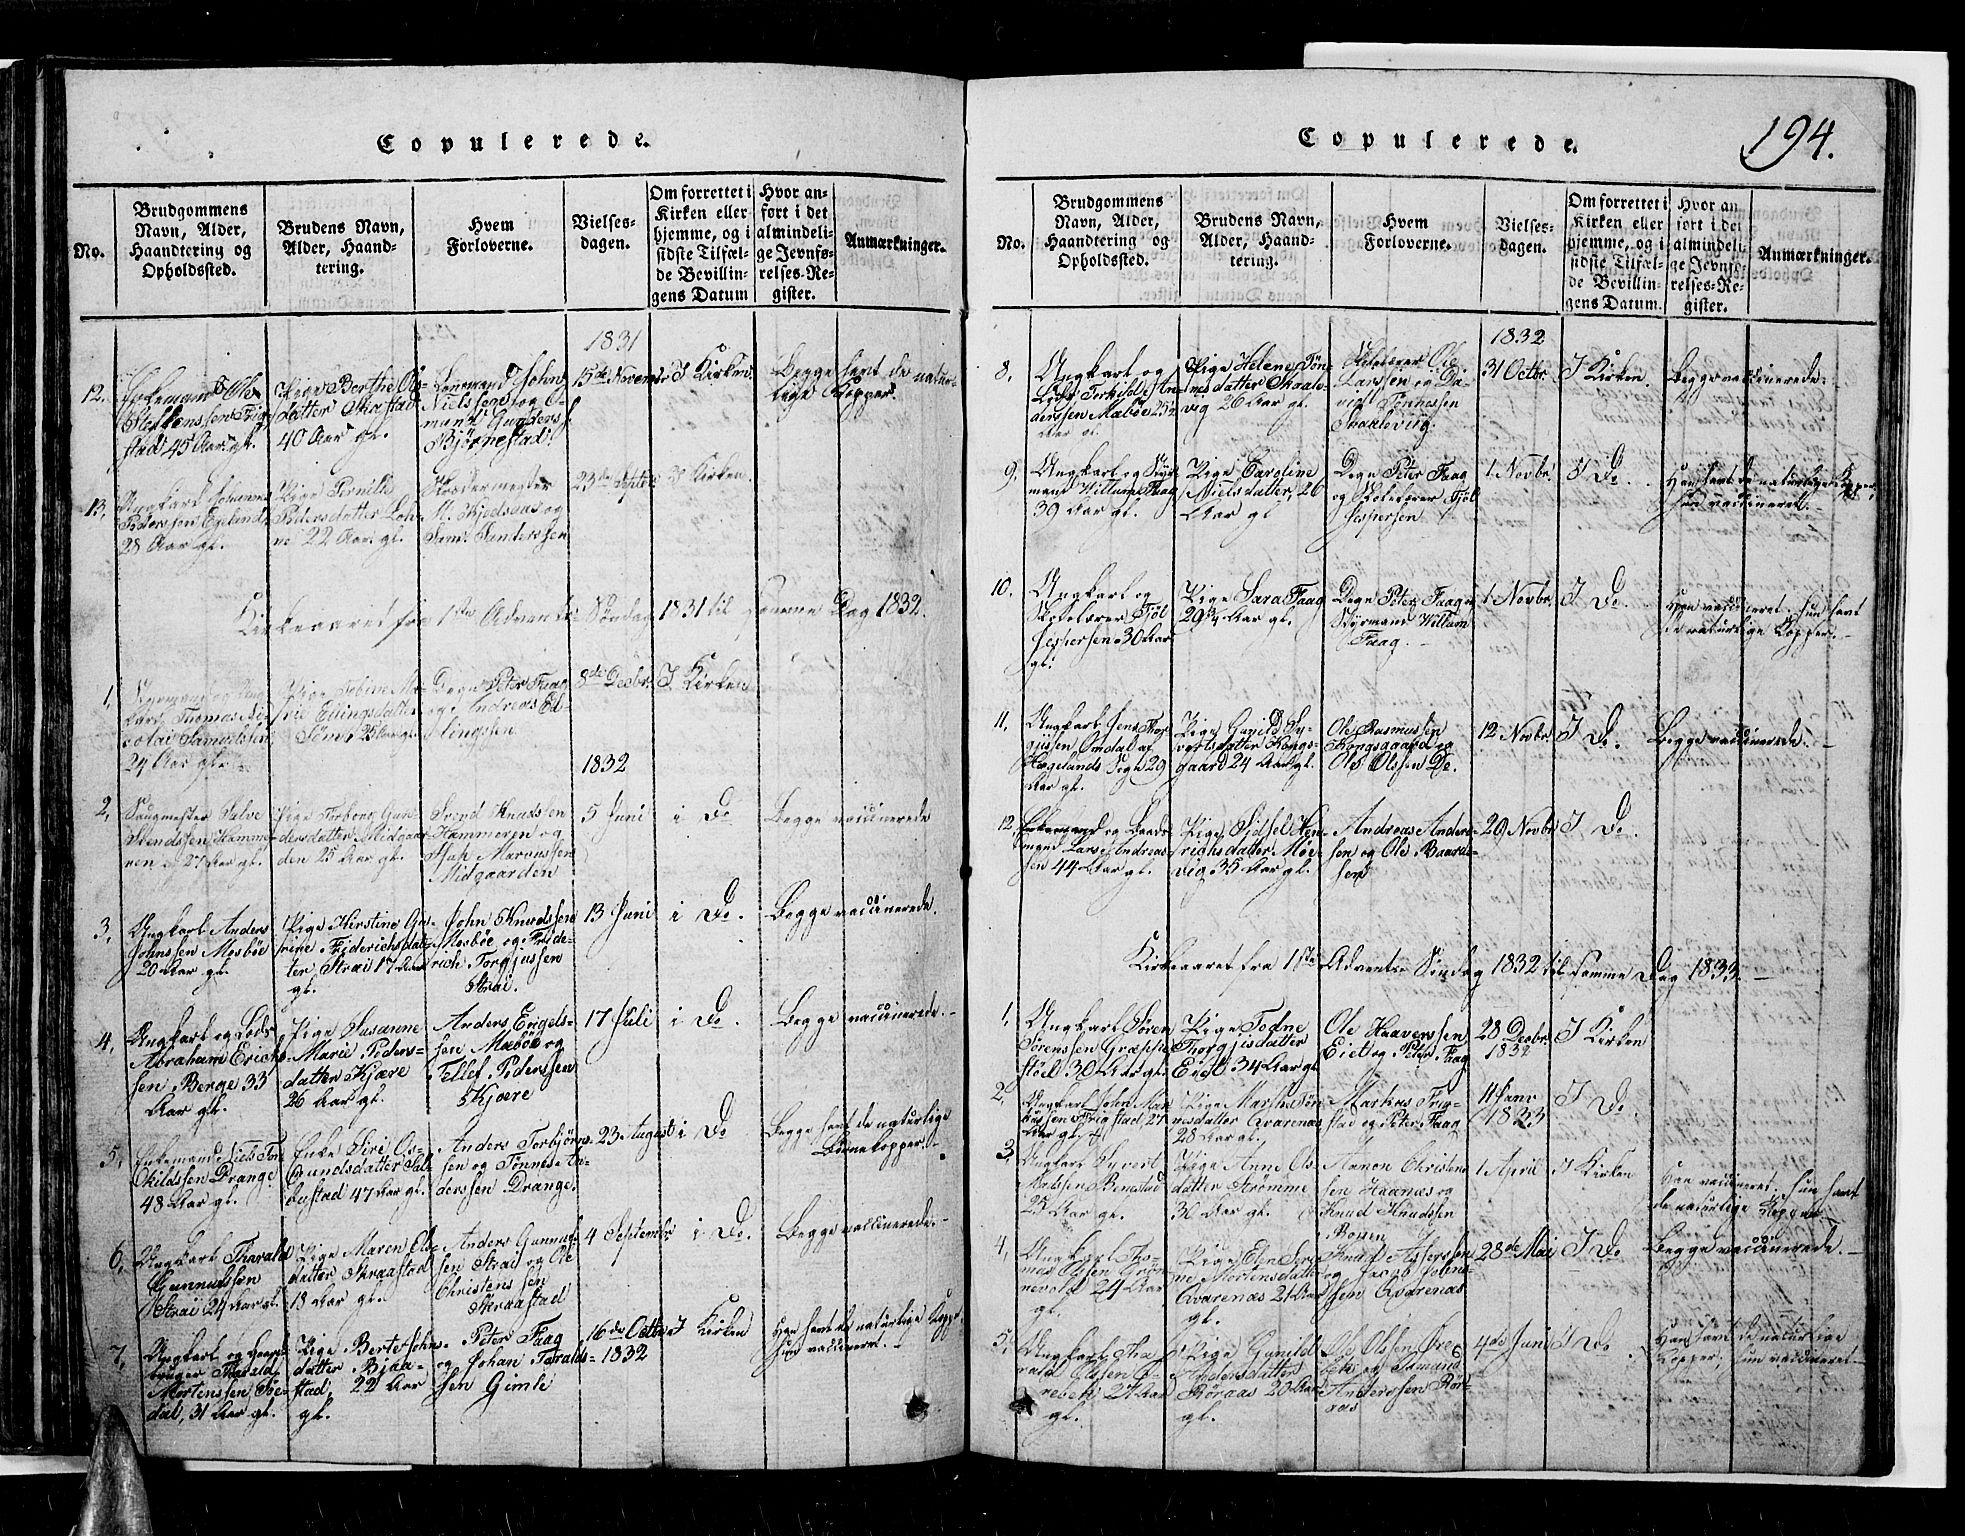 Copulerede.
No.
Brudgommens Navn, Alder, Haandtering og Opholdssted.
Brudens Navn, Alder, Haandtering.
Hvem Forloverne.
Vielsesdagen.
Om forrettet i Kirken eller hjemme, og i sidste Tilfælde Bevillingens Datum
Hvor anført i det almindelige Jevnførelses-Register.
Anmærkninger.
1831
12.
Enkemand Ole
stad 45 Aar gl.
Pige Berthe Ols-
datter Skrastad
40 Aar gl.
Lensmand John
Nielssen og
Bjørnestad
15de Novembr
I Kirken
Begge havt de natur-
lige Kopper.
13.
Ungkarl Johannes
Pederssen Egeland
28 Aar gl.
Pige Pernille
Pedersdatter
22 Aar gl.
M. Kjedsaas og
Sam. Sanderssen
23de Septbr
I Kirken
Kirkeaaret fra 1ste Advents Søndag 1831 til samme Dag 1832.
1.
Styrmand og Ung-
karl Thomas Ni-
colai Samuelssen
24 Aar gl.
Pige Tobine Ma-
rie Ellingsdatter
25 Aar gl.
Degn Peter Faag
og Andreas El-
lingssen
8de Decbr.
I Kirken
1832
2.
Saugmester Salve
Svendssen Hamme-
ren 27 Aar gl.
Pige Torborg Gun-
dersdatter Midgaar-
den 25 Aar gl.
Svend Knudssen
Hammeren og
Marcussen
Midgaarden
5 Juni
i Do
Begge vaccinerede
3.
Ungkarl Anders
Johnssen Mosbøe
20 Aar gl.
Pige Kirstine Ca-
trine Friderichsdat-
ter Strai 17 Aar
gl.
John Knudssen
Mosbøe og Fride-
rich Torgjussen
Strai.
13 Juni
i Do.
Begge vaccinerede.
4.
Ungkarl og Lods
Abraham Erich-
sen Berge 33
Aar gl.
Pige Susanne
Marie Peders-
datter Kjære
26 Aar gl.
Anders Engels-
sen Mæbøe og
Tellef Pederssen
Kjære
17 Juli
i Do.
Begge vaccinerede.
5.
Enkemand Niels Tor-
kildssen Drange
48 Aar gl.
Enke Siri Os-
mundsdatter
47 Aar gl.
Anders Torbjørns-
sen og Tønnes An-
derssen Drange.
23 August
i Do
Begge havt de naturlige
Børnekopper.
6.
Ungkarl Tharald
Gunnulfssen
Strai 24 Aar gl.
Pige Maren Ols-
datter Skraastad
18 Aar gl.
Anders Gunnulf-
sen Strai og Ole
Christenssen
Skraastad
4 September
i Do.
Begge vaccinerede.
7.
Ungkarl og Gaard-
bruger Tharald
Mortenssen
dal, 31 Aar gl.
Pige Berte Johns-
datter Bjaa-
stad, 22 Aar
gl.
Peter Faag
og Johan Taralds-
sen Gimle
16de Octbr
1832
I Kirken
Han havt de naturlige Kopp.
hun vaccineret.
Copulerede.
194.
No.
Brudgommens Navn, Alder, Haandtering og Opholdssted.
Brudens Navn, Alder, Haandtering.
Hvem Forloverne.
Vielsesdagen.
Om forrettet i Kirken eller hjemme, og i sidste Tilfælde Bevillingens Datum.
Hvor anført i det almindelige Jevnførelses-Register.
Anmærkninger.
1832
8.
Ungkarl og
Lods Torkild An-
derssen Mæbøe 25½
Aar gl.
Pige Helene Tøn-
nesdatter Skaale-
vig 26 Aar gl.
Skolelærer Ole
Larssen og Da-
vid Tønnessen
Skaalevig.
31 Octbr.
I Kirken.
Begge vaccinerede.
9.
Ungkarl og Styr-
mand Willum Faag
30 Aar gl.
Pige Caroline
Nielsdatter 26
Aar gl
Degn Peter Faag
og Skolelærer Fjöl
Jespersen
1 Novbr.
I Do.
Han havt de naturlige Kopper,
hun vaccineret.
10.
Ungkarl og
Skolelærer Fjöl
Jespersen 30 Aar
gl.
Pige Sara Faag
29¾ Aar gl.
Degn Peter Faag og
Styrmand Willum
Faag.
1 Novbr.
I Do.
Han vaccineret. Hun havt
de naturlige Kopper.
11.
Ungkarl Jens Thor-
gjussen Omdal af
Hægelands Sogn 29
Aar gl.
Pige Gunild Sy-
vertsdatter Kongs-
gaard 24 Aar gl.
Ole Rasmussen
Kongsgaard og
Ole Olssen Do.
12 Novbr.
I Do.
Begge vaccinerede.
12.
Enkemand og Bonde-
mand Lars Andreas-
sen 44 Aar gl.
Pige Sidsel Hen-
richsdatter Møe-
vig 35 Aar gl.
Andreas Anders-
sen og Ole Baards-
sen
29 Novbr
I Do.
Kirkeaaret fra 1ste Advents Søndag 1832 til samme Dag 1833.
1.
Ungkarl Søren
Sørenssen Græpste-
støel 30 Aar gl.
Pige Todne
Thorgjisdatter
Eiet 34 Aar gl
Ole Haavorssen
Eiet og Peter Faag
28 Decbr.
1832
I Kirken
2.
Ungkarl John Mar-
cussen Frigstad, 27
Aar gl.
Pige Marthe Tøn-
nesdatter Qvarenæs
28 Aar gl.
Markus Frig-
stad og Peter Faag
11 Janv
1833
I Do.
3.
Ungkarl Syvert
Benestad
25 Aar gl.
Pige Anne Ols-
datter Strømme
30 Aar gl.
Aanon Christens-
sen Haanæs og
Knud Knudssen
Bouen
1 April
I Kirken
Han vaccineret. Hun havt
de naturlige Kopper.
4.
Ungkarl Tho-
mas Olssen Grøn-
nevold 24 Aar
gl.
Pige Elen Sere-
ne Mortensdatter
Qvarenæs 21 Aar
gl.
Knud Asserssen
og Jacob Johns-
sen Qvarenæs
28de Mai
I Do
Begge vaccinerede.
5.
Ungkarl Tha-
rald Olssen Ø-
rebek 27 Aar
gl.
Pige Gunild
Andersdatter
Røraas 20 Aar
gl.
Ole Olssen Øre-
bek og Samund
Anderssen Rør-
aas
4de Juni
I Do
Han havt de naturlige
Kopper, hun vaccineret.